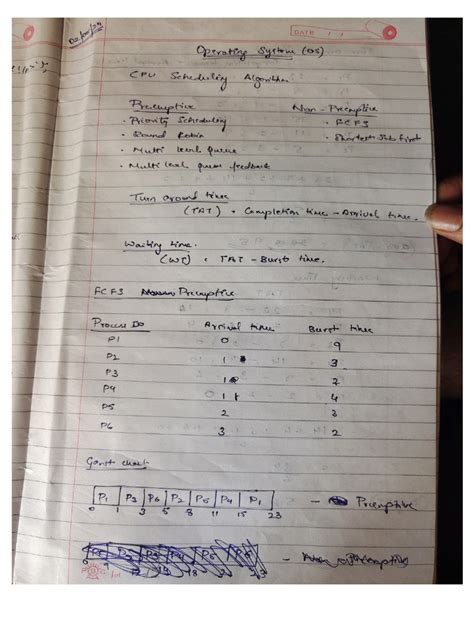 DATE / /
Operating System (OS)
CPU Scheduling Algorithm
Preemptive Non-Preemptive
• Priority Scheduling • FCFS
• Round Robin • Shortest Job first
• Multi level Queue
• Multi level Queue feedback
Turn around time
(TAT) = Completion time - Arrival time.
Waiting time.
(WT) = TAT - Burst time.
FCFS Preemptive
Process ID Arrival time Burst time
P1 0 9
P2 1 3
P3 1 2
P4 1 4
P5 2 3
P6 3 2
Gantt chart
P1 P3 P6 P2 P5 P4 P1 - Preemptive
0 1 3 5 8 11 15 23